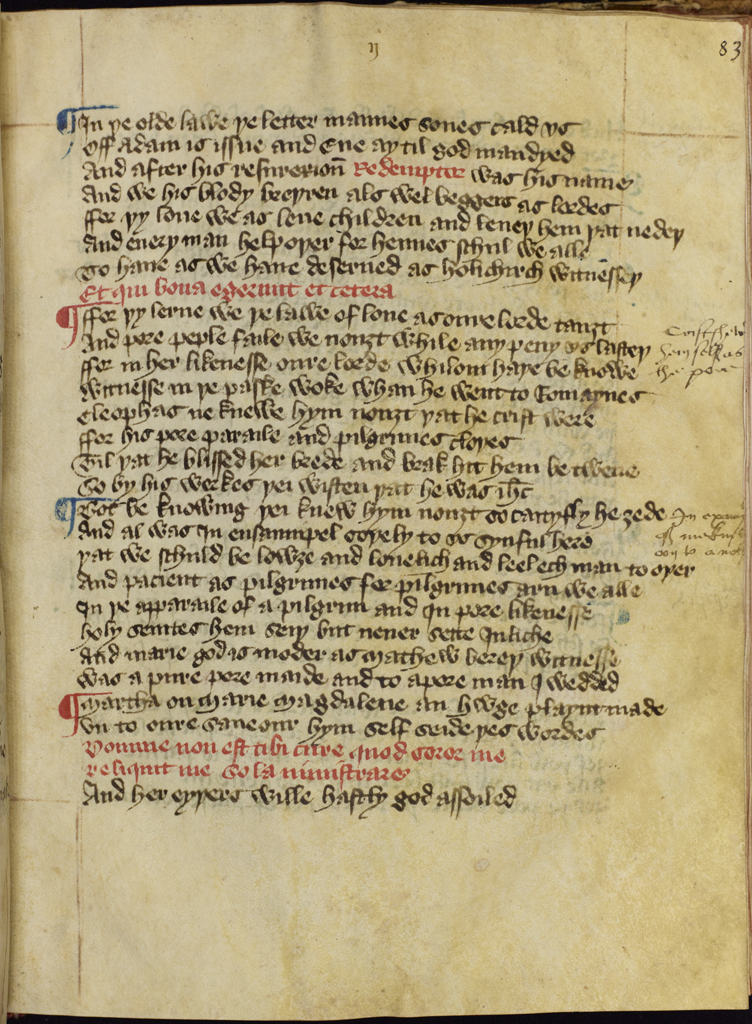 ij
83
¶ In þe olde lawe þe letter mannes sones cald vs
Off Adam is issue and Eue ay til god man dyed
And after his resurexioun Redemptor was his name
And we his blody breþren als wel beggers as lordes
ffor þy loue we as leue children and leneþ hem þat nedeþ
And euery man help oþer for hennes schul we alle
To haue as we haue deserued as holichirch witnesseþ
Et qui bona egerunt et cetera
¶ ffor þy lerne we þe lawe of loue as oure lorde tauȝt
And pore peple faile we nouȝt while any peny vs lasteþ
ffor in her likenesse oure lorde whilom haþe be knowe
Witnesse in þe paske woke whan he went to Emaynes
Cleophas ne knewe hym nouȝt þat he crist were
ffor his pore paraile and pilgrimes cloþes
Til þat he blissed her brede and brak hit hem be twene
So by his werkes þei wisten þat he was ihc
¶ Bot be knowing þei knew hym nouȝt so caityfly he ȝede
And al was In ensaumpel soþely to vs synful here
þat we schuld be lowȝe and louelich and leel ech man to oþer
And pacient as pilgrimes for pilgrimes arn we alle
In þe apparaile of a pilgrim and In pore likenesse
holy seintes hem seiȝ but neuer sette In liche
And marie god is moder as Mathew bereþ witnesse
Was a pure pore maide and to a pore man I wedded
¶ Martha on Marie Magdalene an hwge playnt made
Vn to oure saueour hym self seide þes wordes
Domine non est tibi cure quod soror me
reliquit me so la ministrare
And her eyþers wille hastly god assoiled
Crist
hym self as
the pore
In
of